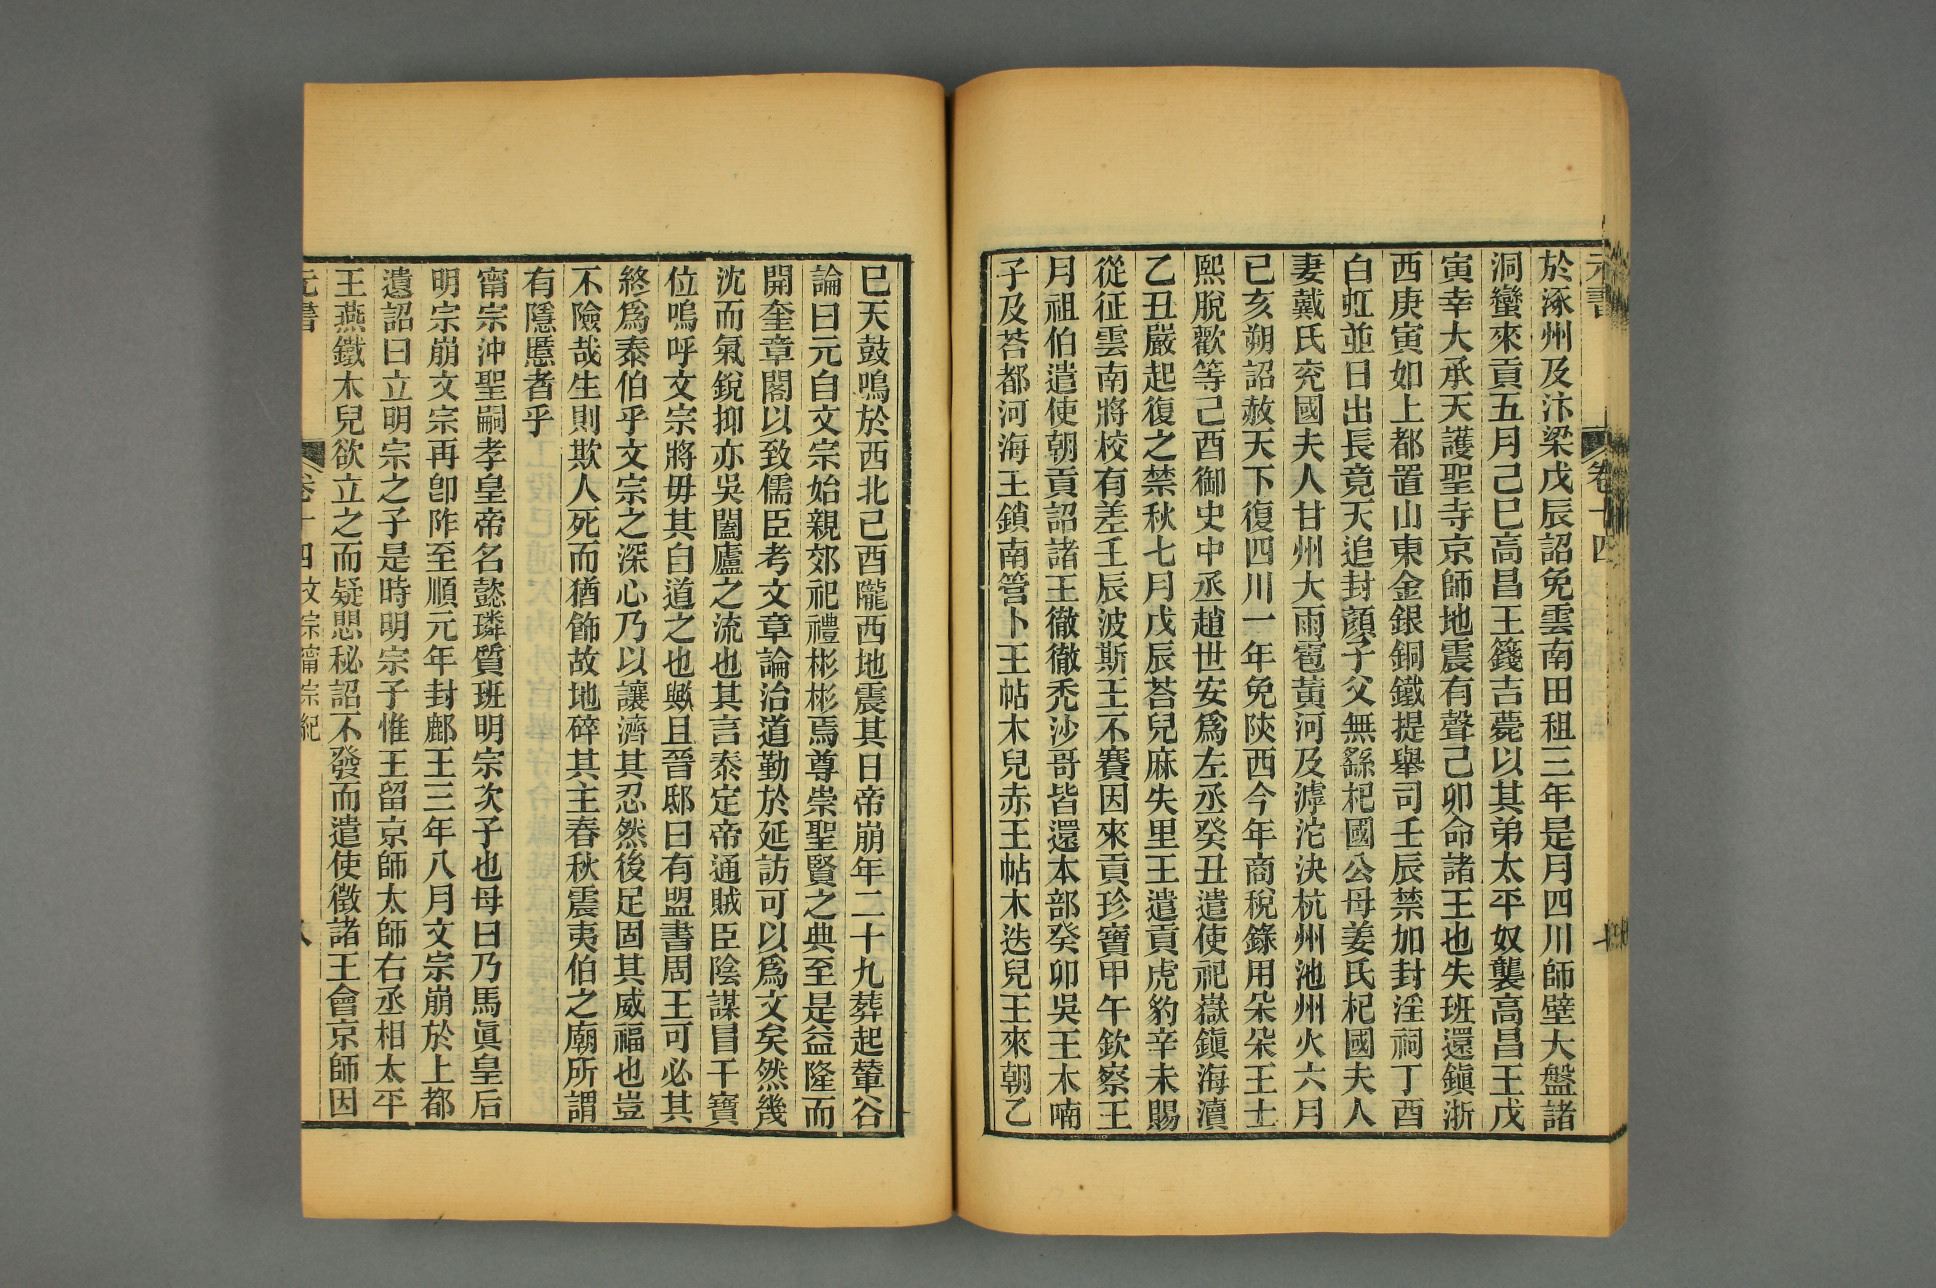 元書
卷十四
七
於涿州及汴梁戊辰詔免雲南田租三年是月四川師壁大盤諸
洞蠻來貢五月己巳高昌王籛吉薨以其弟太平奴襲高昌王戊
寅幸大承天護聖寺京師地震有聲己卯命諸王也失班還鎭浙
西庚寅如上都置山東金銀銅鐵提舉司壬辰禁加封淫祠丁酉
白虹並日出長竟天追封顏子父無繇杞國公母姜氏杞國夫人
妻戴氏兖國夫人甘州大雨雹黃河及滹沱決杭州池州火六月
已亥朔詔赦天下復四川一年免陜西今年商稅錄用朶朶王士
熙脫歡等己酉御史中丞趙世安爲左丞癸丑遣使祀嶽鎭海瀆
乙丑嚴起復之禁秋七月戊辰荅兒麻失里王遣貢虎豹辛未賜
從征雲南將校有差壬辰波斯王不賽因來貢珍寶甲午欽察王
月祖伯遣使朝貢詔諸王徹徹禿沙哥皆還本部癸卯吳王木喃
子及荅都河海王鎖南管卜王帖木兒赤王帖木迭兒王來朝乙
巳天鼓鳴於西北己酉隴西地震其日帝崩年二十九葬起輦谷
論曰元自文宗始親郊祀禮彬彬焉尊崇聖賢之典至是益隆而
開奎章閣以致儒臣考文章論治道勤於延訪可以爲文矣然幾
沈而氣銳抑亦吳闔廬之流也其言泰定帝通賊臣陰謀冒干寶
位嗚呼文宗將毋其自道之也歟且晉邸曰有盟書周王可必其
終爲泰伯乎文宗之深心乃以讓濟其忍然後足固其威福也豈
不險哉生則欺人死而猶飾故地碎其主春秋震夷伯之廟所謂
有隱慝者乎
甯宗沖聖嗣孝皇帝名懿璘質班明宗次子也母曰乃馬眞皇后
明宗崩文宗再卽阼至順元年封鄜王三年八月文宗崩於上都
遺詔曰立明宗之子是時明宗子惟王留京師太師右丞相太平
王燕鐵木兒欲立之而疑愳秘詔不發而遣使徵諸王會京師因
元書
卷十四文宗甯宗紀
八